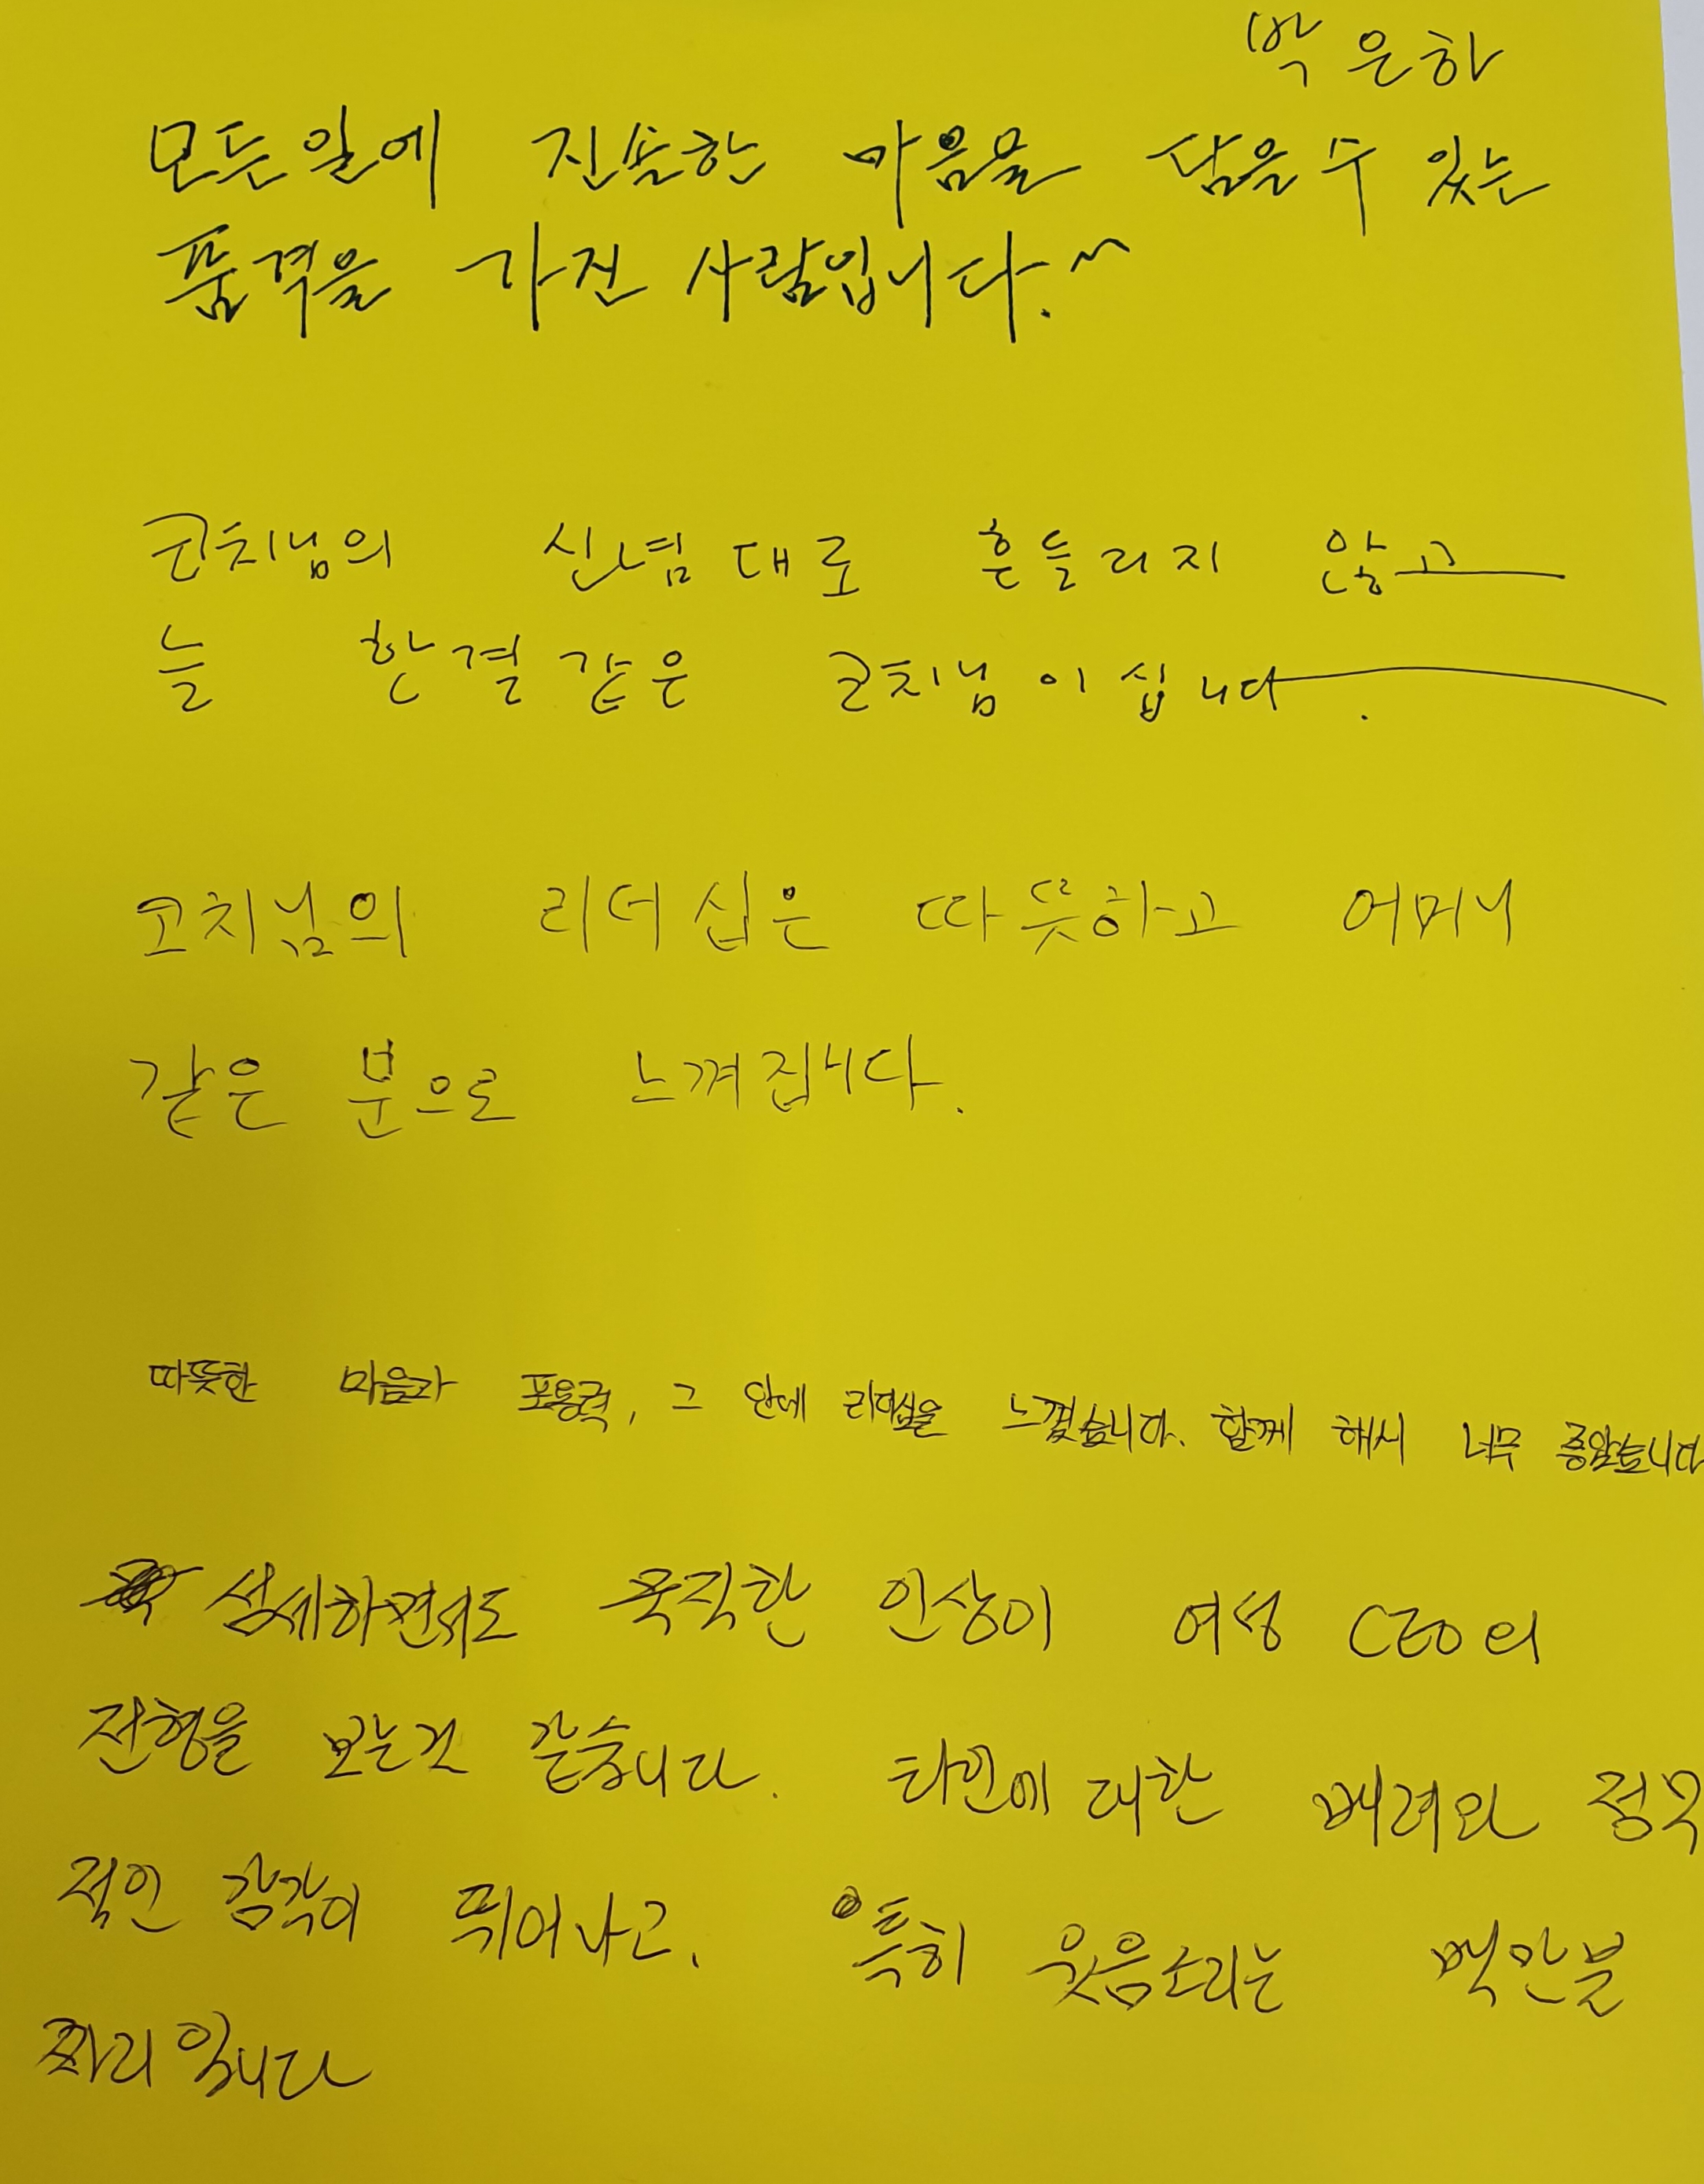 박은하
모든일에 진솔한 마음을 담을 수 있는
품격을 가진 사람입니다.~
코치님의 신념대로 흔들리지 않고
늘 한결같은 코치님이십니다.
코치님의 리더십은 따뜻하고 어머니
같은 분으로 느껴집니다.
따뜻한 마음과 포용력, 그 안에 리더십을 느꼈습니다. 함께 해서 너무 좋았습니다
섬세하면서도 묵직한 인상이 여성 CEO의
전형을 보는것 같습니다. 타인에 대한 배려와 정무
적인 감각이 뛰어나고, 특히 웃음소리는 백만불
짜리 입니다